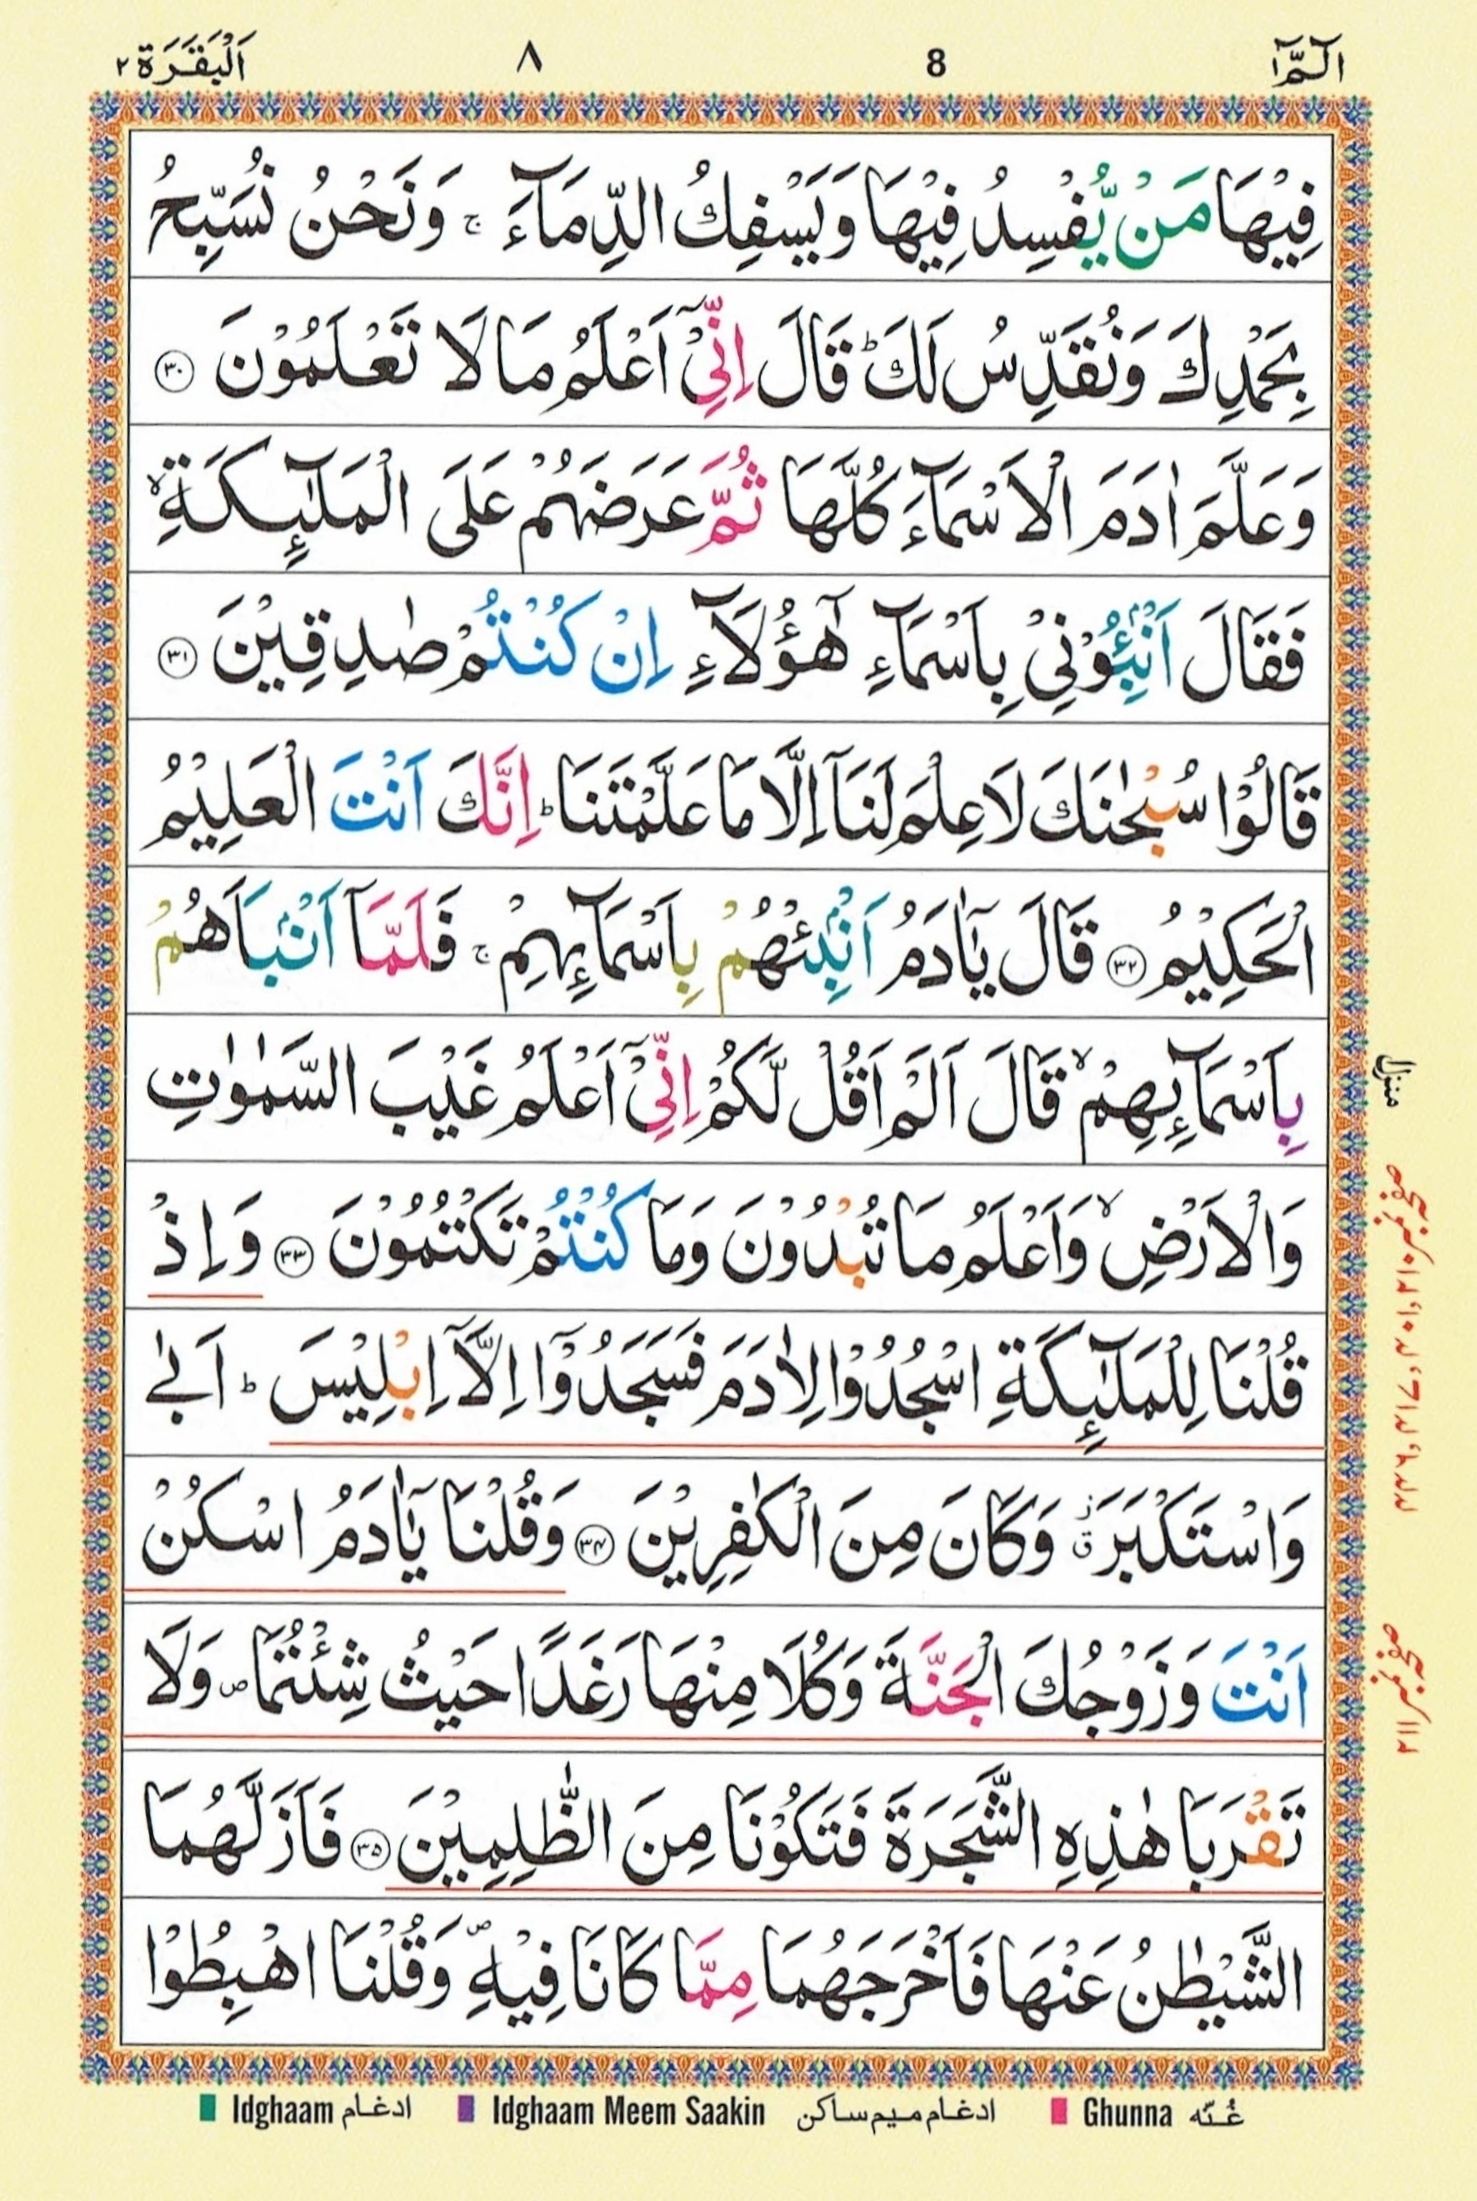 الٓمّٓ ١ 8 ٨ اَلْبَقَرَة ٢
فِيْهَا مَنْ يُّفْسِدُ فِيْهَا وَيَسْفِكُ الدِّمَآءَ ۚ وَنَحْنُ نُسَبِّحُ
بِحَمْدِكَ وَنُقَدِّسُ لَكَ ؕ قَالَ اِنِّيْٓ اَعْلَمُ مَا لَا تَعْلَمُوْنَ ۝۳۰
وَعَلَّمَ اٰدَمَ الْاَسْمَآءَ كُلَّهَا ثُمَّ عَرَضَهُمْ عَلَى الْمَلٰٓئِكَةِ ۙ
فَقَالَ اَنْۢبِـُٔوْنِيْ بِاَسْمَآءِ هٰٓؤُلَآءِ اِنْ كُنْتُمْ صٰدِقِيْنَ ۝۳۱
قَالُوْا سُبْحٰنَكَ لَا عِلْمَ لَنَآ اِلَّا مَا عَلَّمْتَنَا ؕ اِنَّكَ اَنْتَ الْعَلِيْمُ
الْحَكِيْمُ ۝۳۲ قَالَ يٰٓاٰدَمُ اَنْۢبِئْهُمْ بِاَسْمَآئِهِمْ ۚ فَلَمَّآ اَنْۢبَاَهُمْ
بِاَسْمَآئِهِمْ ۙ قَالَ اَلَمْ اَقُلْ لَّكُمْ اِنِّيْٓ اَعْلَمُ غَيْبَ السَّمٰوٰتِ
وَالْاَرْضِ ۙ وَاَعْلَمُ مَا تُبْدُوْنَ وَمَا كُنْتُمْ تَكْتُمُوْنَ ۝۳۳ وَاِذْ
قُلْنَا لِلْمَلٰٓئِكَةِ اسْجُدُوْا لِاٰدَمَ فَسَجَدُوْٓا اِلَّآ اِبْلِيْسَ ؕ اَبٰى
وَاسْتَكْبَرَ ۗ وَكَانَ مِنَ الْكٰفِرِيْنَ ۝۳۴ وَقُلْنَا يٰٓاٰدَمُ اسْكُنْ
اَنْتَ وَزَوْجُكَ الْجَنَّةَ وَكُلَا مِنْهَا رَغَدًا حَيْثُ شِئْتُمَا ۪ وَلَا
تَقْرَبَا هٰذِهِ الشَّجَرَةَ فَتَكُوْنَا مِنَ الظّٰلِمِيْنَ ۝۳۵ فَاَزَلَّهُمَا
الشَّيْطٰنُ عَنْهَا فَاَخْرَجَهُمَا مِمَّا كَانَا فِيْهِ ۪ وَقُلْنَا اهْبِطُوْا
منزل ١
Idghaam ادغام Idghaam Meem Saakin ادغام میم ساکن Ghunna غُنّه